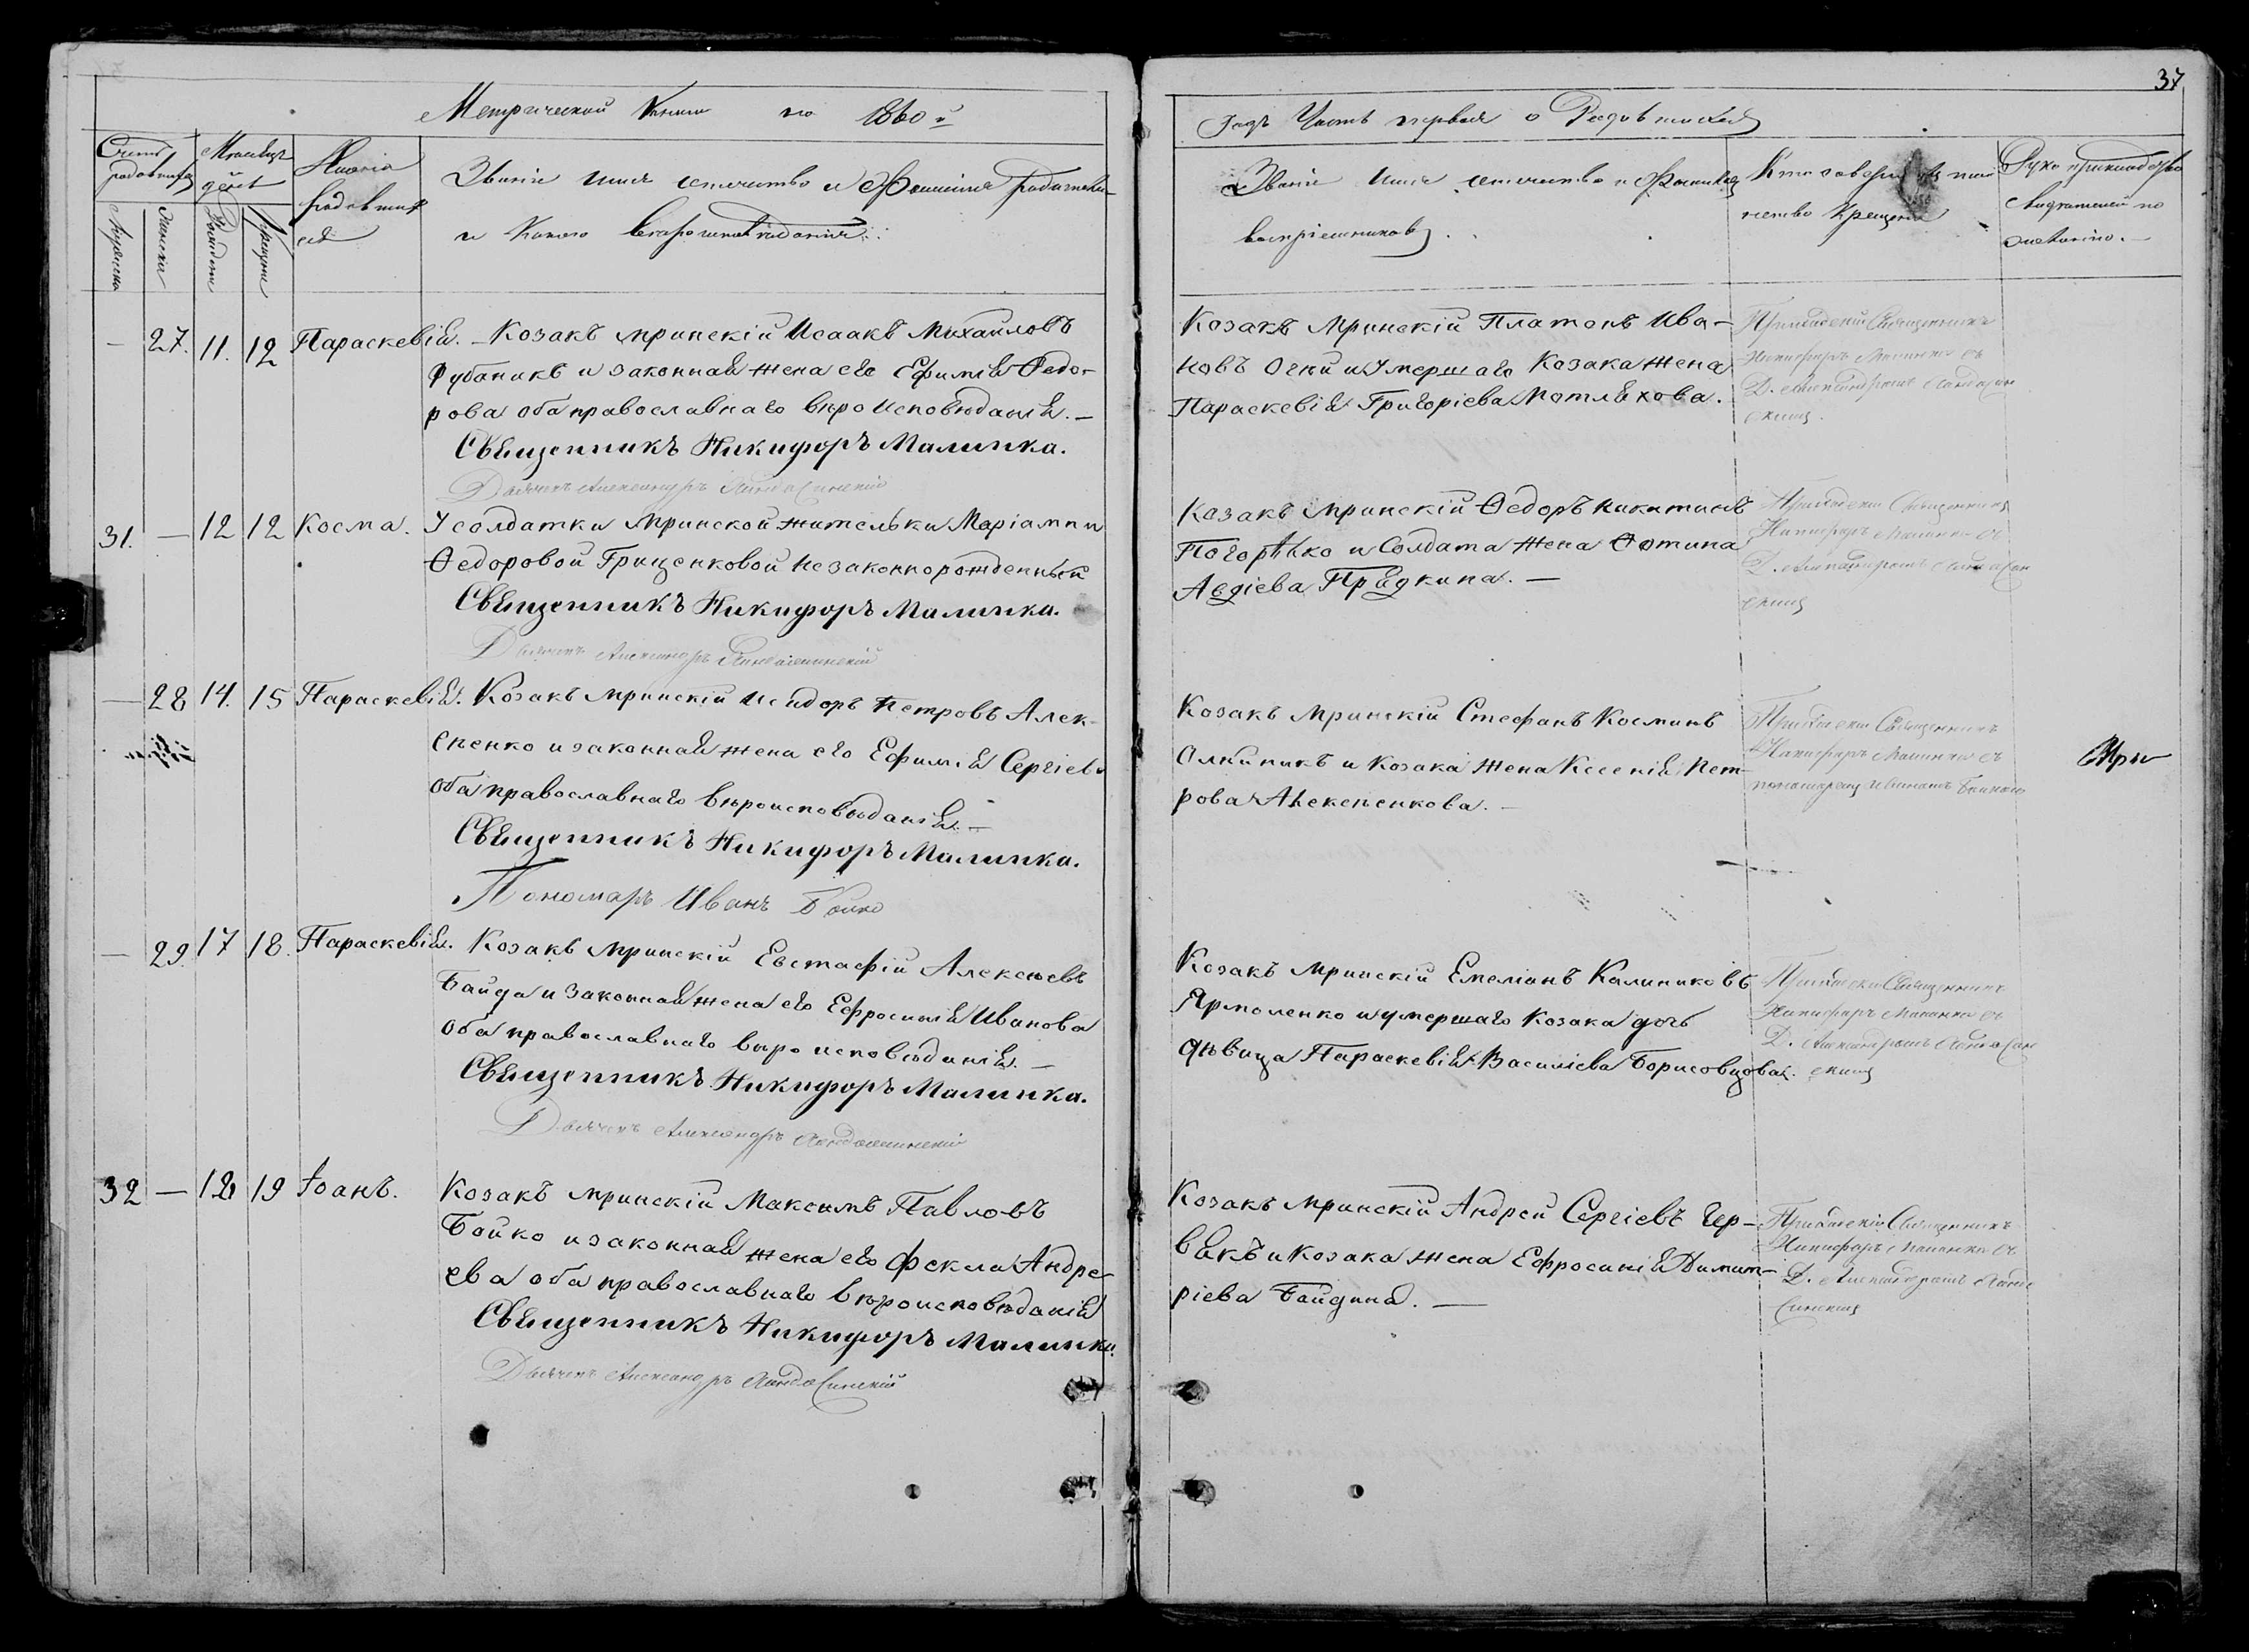 37
Метрической Книги на 1860й
Годъ Часть первая о Родившихся
Счетъ родившихся
Мужеска
Женска
Месяцъ и день
Рожденія
Крещенія
Имена родившихся
Званіе имя отчество и Фамилія родителей
и какого вероисповеданія
Званіе имя отчество и Фамилія
воспріемниковъ
Кто совершалъ таинство Крещенія
Рукоприкладство
свидетелей по
желанію. —
— 27. 11. 12 Параскевія. — Козакъ мринскій Исаакъ Михайловъ
Рубаникъ и законная жена его Ефимія Ѳедо-
рова оба православнаго вѣро исповѣданія. —
Священникъ Никифоръ Малинка.
Дьячекъ Александръ
Козакъ Мринскій Платонъ Ива-
новъ Огни и Умершаго Козака жена
Параскевія Григоріева Мотляхова.
Приходскій Священникъ
Никифоръ Малинка съ
Д. Александромъ
31. — 12 12 Косма. У солдатки мринской жительки Маріамни
Ѳедоровой Гриценковой незаконнорожденный
Священникъ Никифоръ Малинка.
Дьячекъ Александръ
Козакъ Мринскій Ѳедоръ Никитинъ
Погорѣлко и Солдата жена Фотина
Авдіева Прядкина. —
Приходскій Священникъ
Никифоръ Малинка съ
Д. Александромъ
— 28 14. 15 Параскевія. Козакъ мринскій Исидоръ Петровъ Алек-
сенко и законная жена его Ефимія Сергіева
оба православнаго вѣроисповѣданія. —
Священникъ Никифоръ Малинка.
Пономаръ Иванъ Бойко
Козакъ Мринскій Стефанъ Косминъ
Олійникъ и Козака жена Ксенія Пет-
рова Алексенкова. —
Приходскій Священникъ
Никифоръ Малинка съ
пономаремъ Иваномъ Бойкомъ
— 29. 17 18. Параскевія. Козакъ мринскій Евстафій Алексѣевъ
Байда и законная жена его Ефросинія Иванова
оба православнаго вѣро исповѣданія. —
Священникъ Никифоръ Малинка.
Дьячекъ Александръ
Козакъ Мринскій Емеліанъ Калиниковъ
Ярмоленко и умершаго козака дочь
дѣвица Параскевія Василіева Борисовцова.
Приходскій Священникъ
Никифоръ Малинка съ
Д. Александромъ
32 — 18 19 Іоанъ. Козакъ мринскій Максимъ Павловъ
Бойко и законная жена его Фекла Андре-
ева оба православнаго вѣроисповѣданія
Священникъ Никифоръ Малинка.
Дьячекъ Александръ
Козакъ Мринскій Андрей Сергіевъ Чер-
вякъ и Козака жена Ефросинія Димит-
ріева Байдина. —
Приходскій Священникъ
Никифоръ Малинка съ
Д. Александромъ